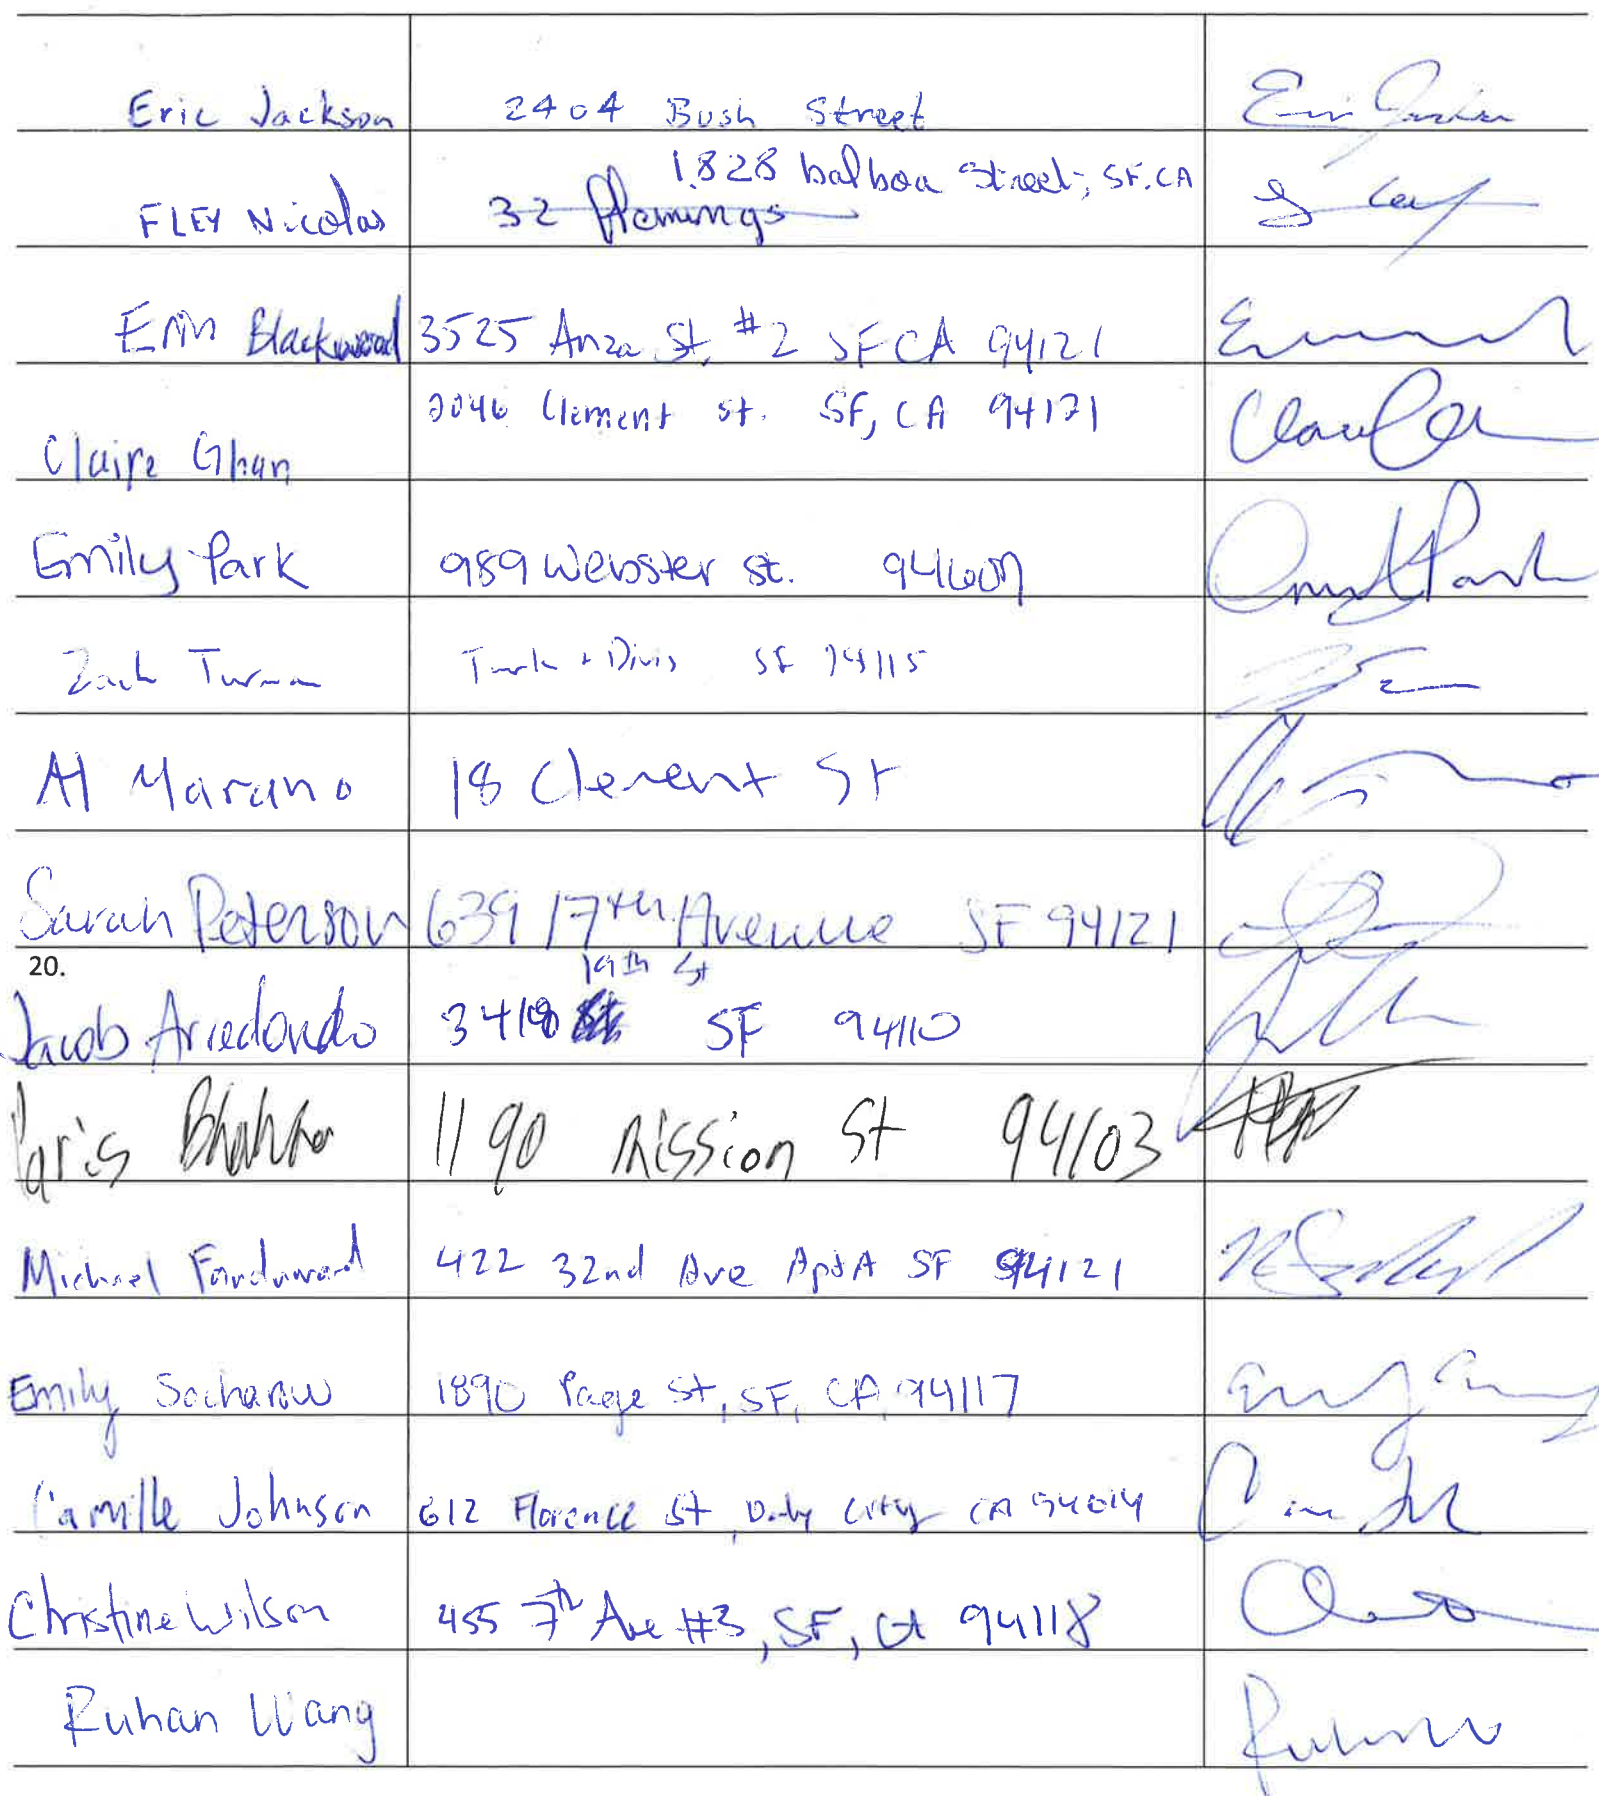 Eric Jackson 2404 Bush Street
1828 balboa Street, SF, CA
FLEY Nicolas 32 Flemings
Erin Blackwood 3525 Anza St, #2 SF CA 94121
2046 Clement St. SF, CA 94121
Claire Ghan
Emily Park 989 Webster St. 94607
Zach Turk + Divis SF 94115
Al Marano 18 Clement St
Sarah Peterson 639 17th Avenue SF 94121
20.
19th St
Jacob Arredondo 3418 SF 94110
Paris 1190 Mission St 94103
Michael 422 32nd Ave Apt A SF 94121
Emily Socharow 1890 Page St, SF, CA, 94117
Camille Johnson 612 Florence St, Daly City CA 94014
Christine Wilson 455 7th Ave #3, SF, CA 94118
Ruhan Wang